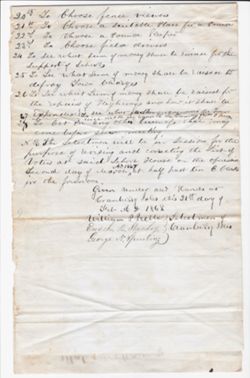 20th To Choose fence viewers
21st To Choose a suitable Place for a Pound
22d To Choose a Pound Keeper
23d To Choose field drivers
24 To see what sum of money shall be raised for the
support of Schools
25 To see what Sum of money shall be raised to
defray Town Charges
26 To see what Sum of money shall be raised for
the repairs of Highways and how it shall be
expended
To act on any other business that may
come before said meeting
N.B. The Selectmen will be in Session for the
purpose of revising and correcting the List of
Votes at said School House on the
second day of March at half past ten O Clock
in the forenoon
Given under our Hands at
Cranberry Isles this 21st day of
Feb. A.D. 1868
William P. Preble Selectmen of
Cranberry Isles
George N.